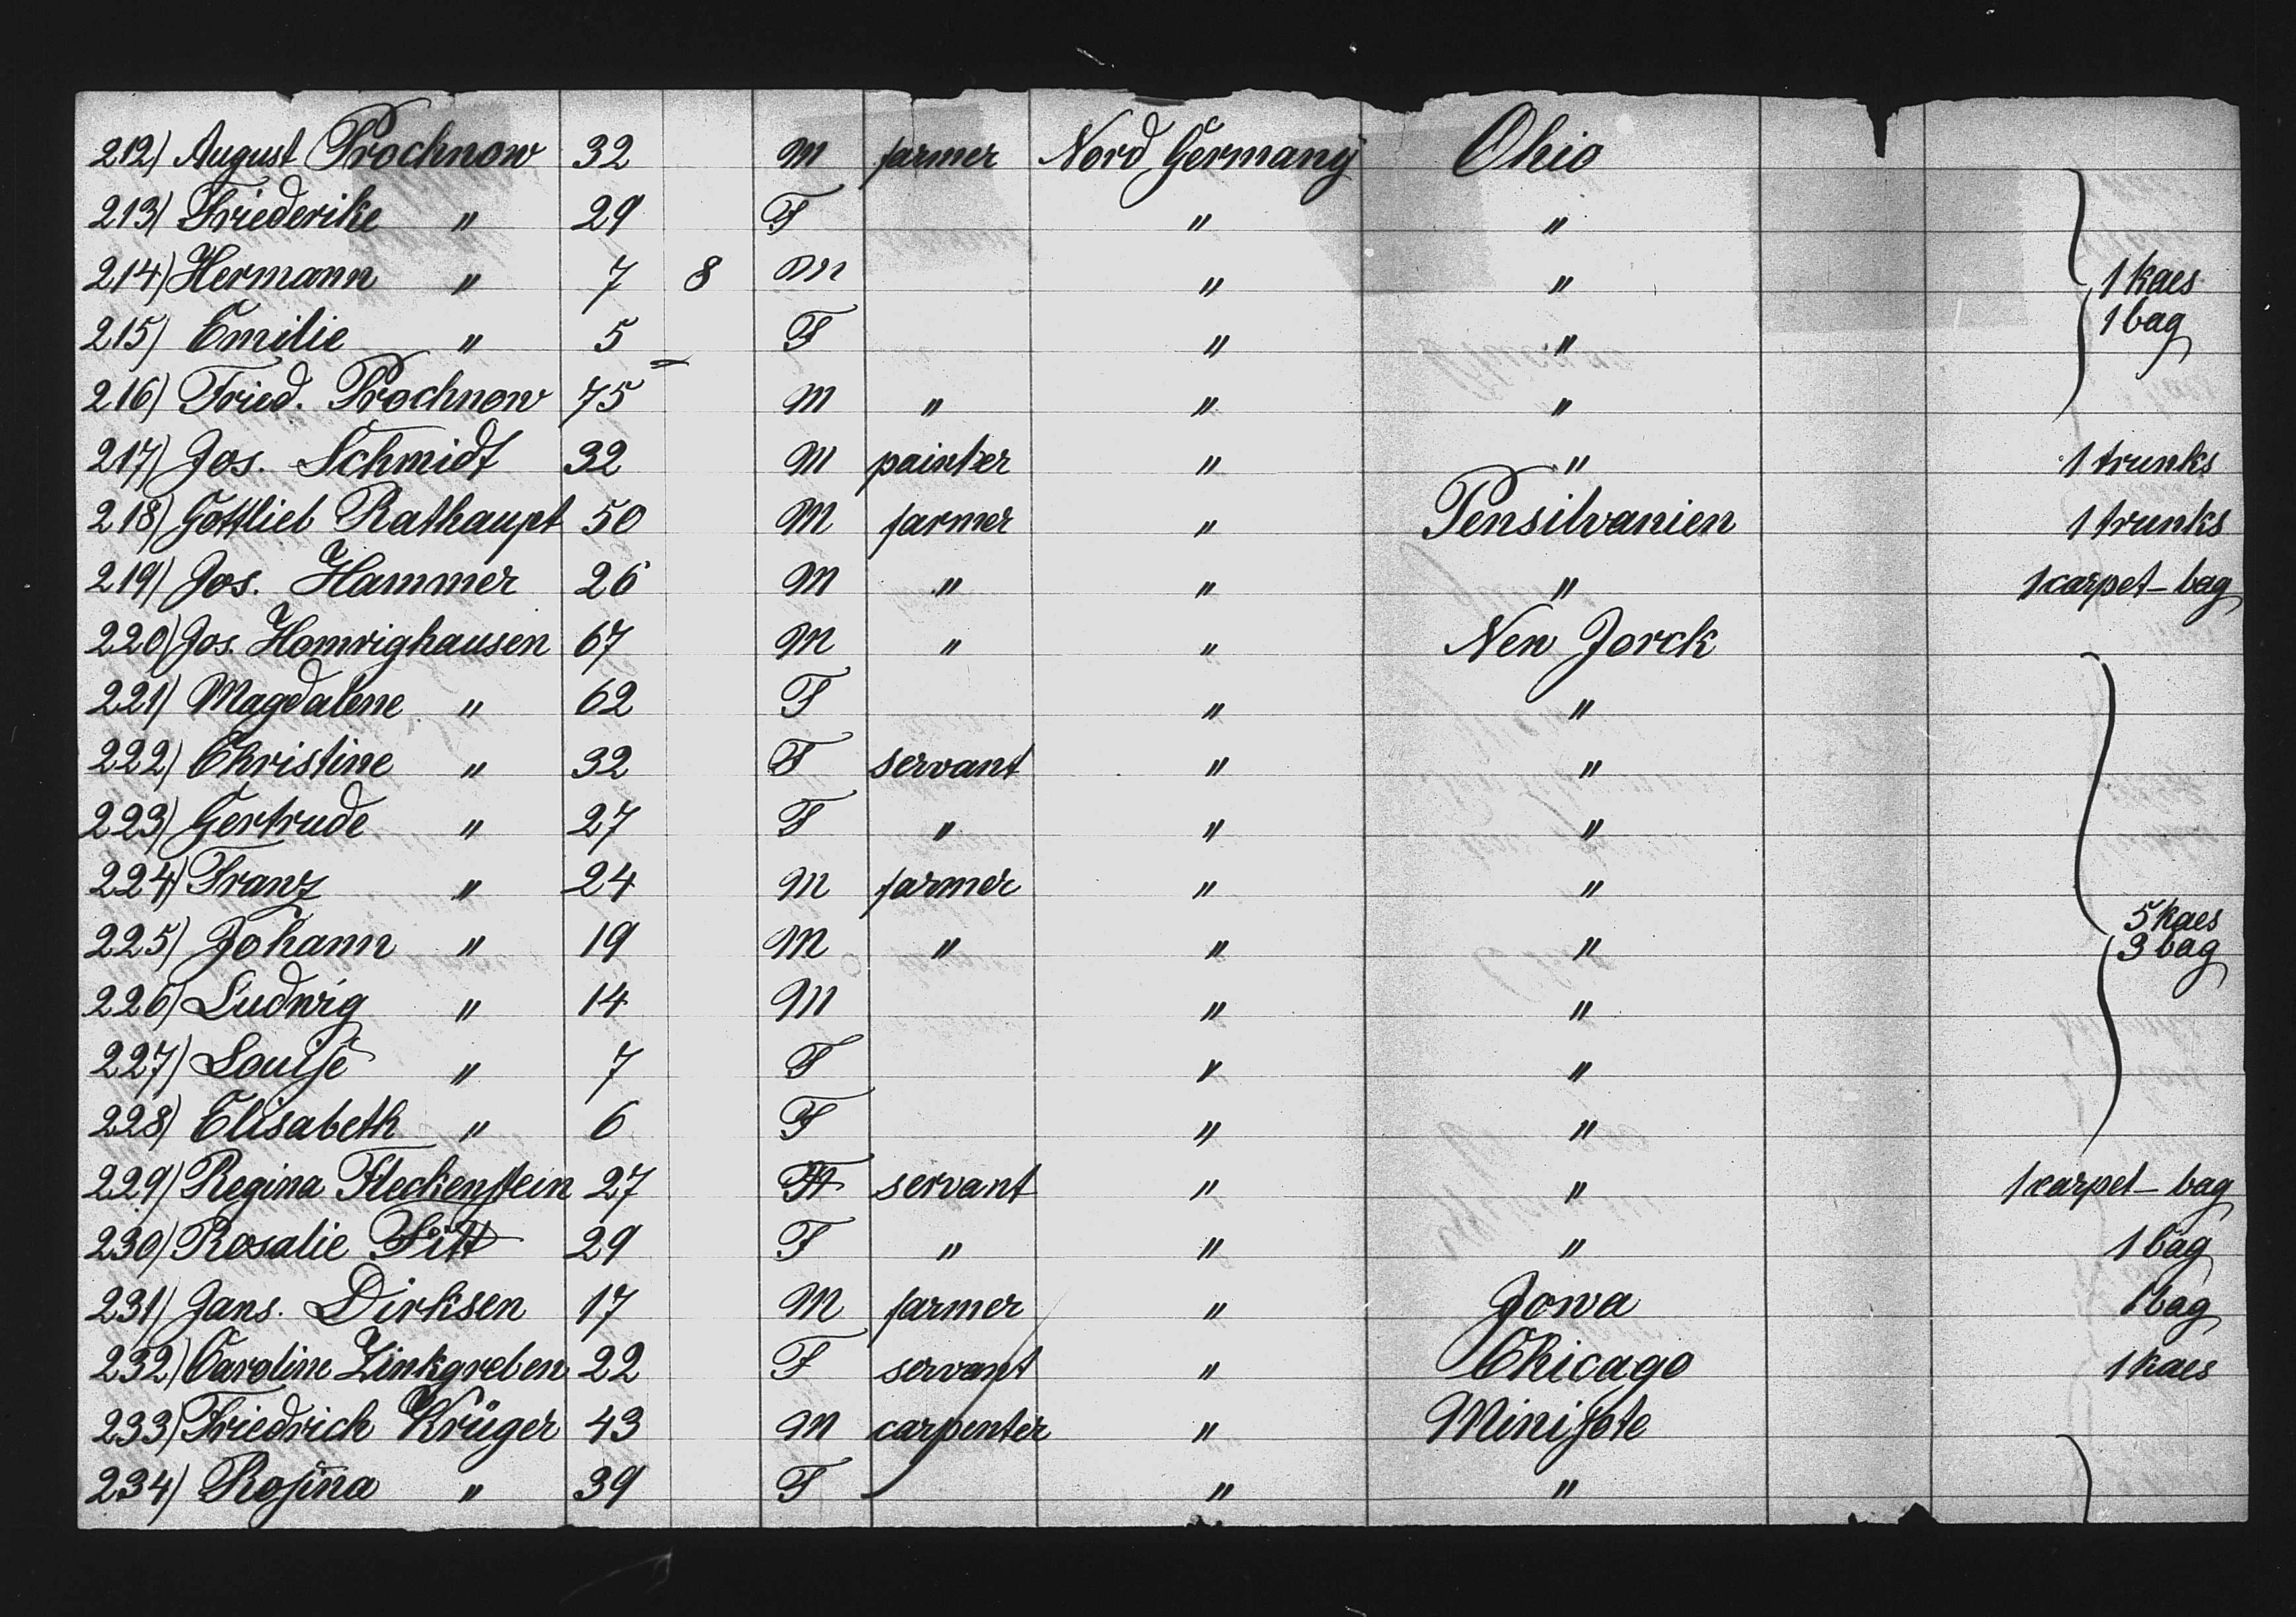 212) August Prochnow 32 M farmer Nord Germany Ohio
213) Friederike " 29 F " "
214) Hermann " 7 8 M " " 1 kaes
215) Emilie " 5 F " " 1 bag
216) Fried. Prochnow 75 M " " "
217) Jos. Schmidt 32 M painter " " 1 trunks
218) Gottlieb Rathaupt 50 M farmer " Pensilvanien 1 trunks
219) Jos. Hammer 26 M " " " 1 carpet-bag
220) Jos. Homrighausen 67 M " " Neu Jorck
221) Magdalene " 62 F " "
222) Christine " 32 F servant " "
223) Gertrude " 27 F " " "
224) Franz " 24 M farmer " "
225) Johann " 19 M " " " 5 kaes 3 bag
226) Ludwig " 14 M " "
227) Louise " 7 F " "
228) Elisabeth " 6 F " "
229) Regina Fleckenstein 27 F servant " " 1 carpet-bag
230) Rosalie Sitt 29 F " " " 1 bag
231) Jans. Dirksen 17 M farmer " Jowa 1 bag
232) Caroline Zinkgreben 22 F servant " Chicago 1 kaes
233) Friedrich Krüger 43 M carpenter " Minisote
234) Rosina " 39 F " "